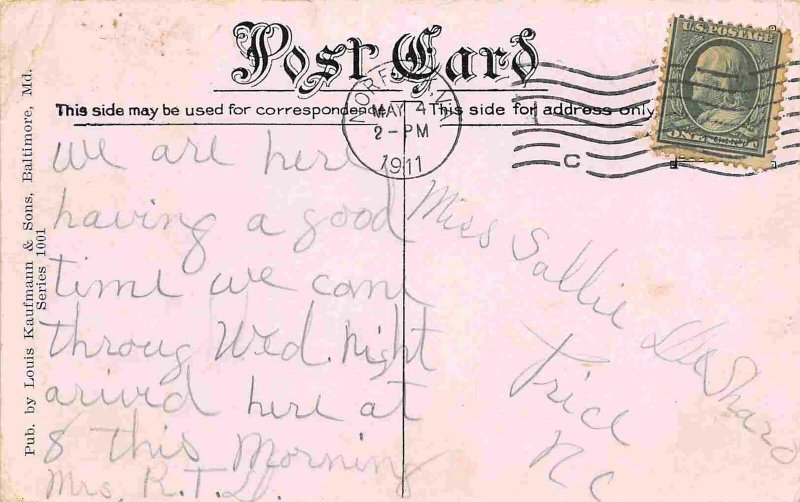 Post Card
This side may be used for correspondence
This side for address only
NORFOLK
MAY 4
2-PM
1911
C
U.S. POSTAGE
ONE CENT 1
Pub. by Louis Kaufmann & Sons, Baltimore, Md.
Series 1001
We are here
having a good
time we came
throug Wed. night
arived here at
8 this Morning
Mrs. R.T.D.
Miss Sallie
Price
N C